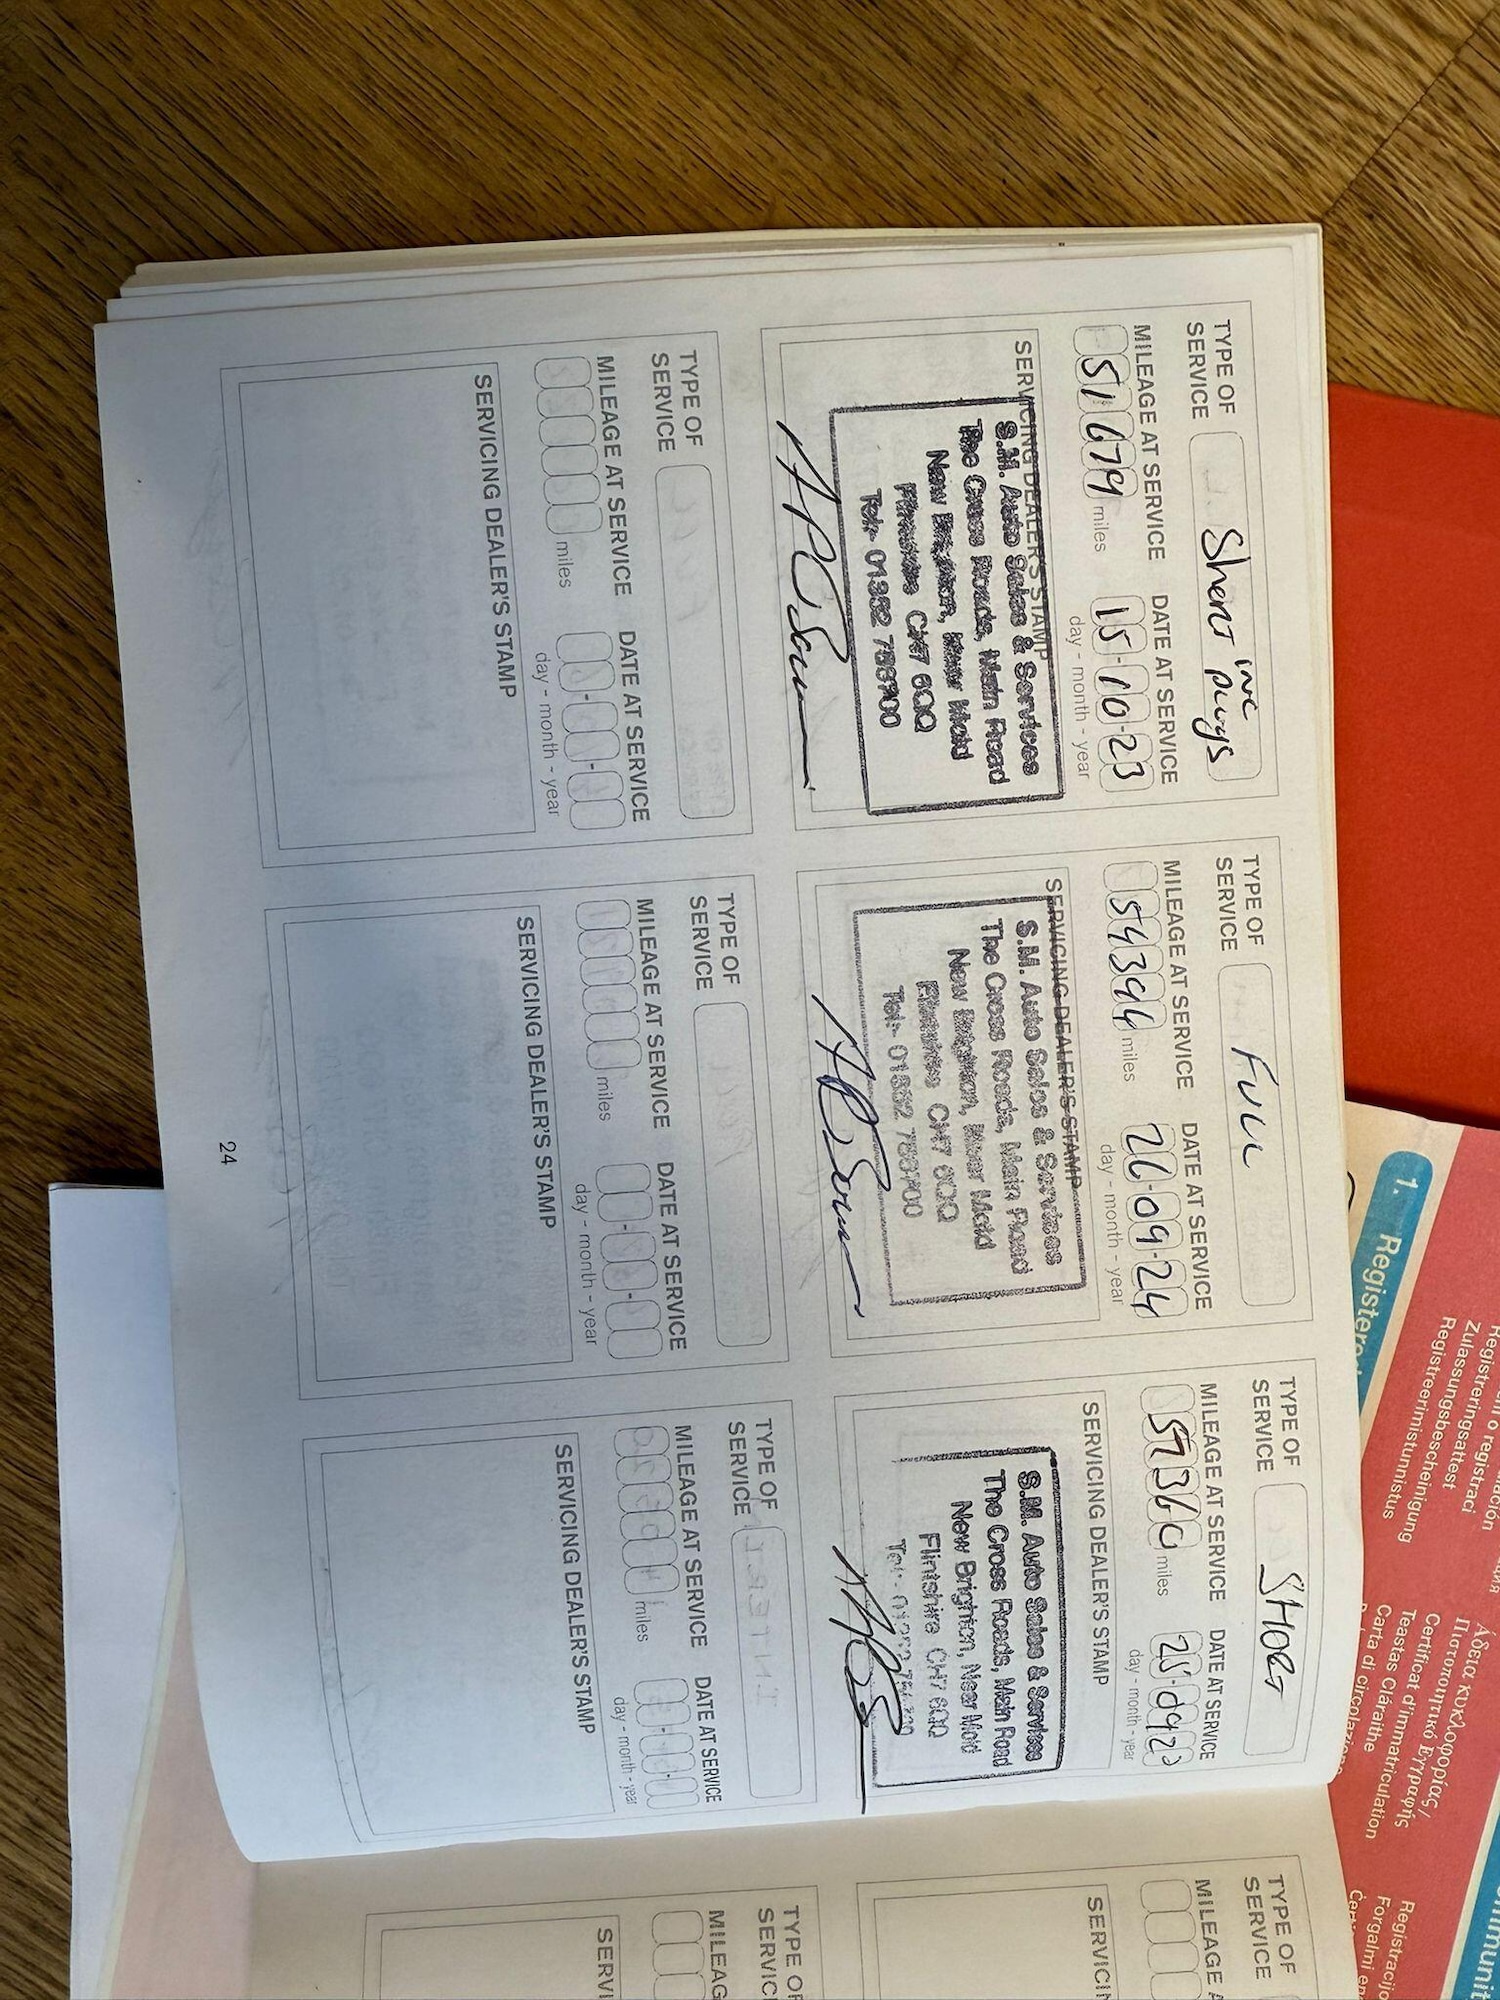 TYPE OF SERVICE Short inc plugs
MILEAGE AT SERVICE DATE AT SERVICE
51679 miles 15-10-23
day - month - year
SERVICING DEALER'S STAMP
S.M. Auto Sales & Services
The Cross Roads, Main Road
New Brighton, Near Mold
Flintshire CH7 6QQ
Tel:- 01352 758700
TYPE OF SERVICE FULL
MILEAGE AT SERVICE DATE AT SERVICE
54394 miles 26-09-24
day - month - year
SERVICING DEALER'S STAMP
S.M. Auto Sales & Services
The Cross Roads, Main Road
New Brighton, Near Mold
Flintshire CH7 6QQ
Tel:- 01352 758700
TYPE OF SERVICE SHORT
MILEAGE AT SERVICE DATE AT SERVICE
miles
day - month - year
SERVICING DEALER'S STAMP
S.M. Auto Sales & Services
The Cross Roads, Main Road
New Brighton, Near Mold
Flintshire CH7 6QQ
TYPE OF SERVICE
MILEAGE AT SERVICE DATE AT SERVICE
miles
day - month - year
SERVICING DEALER'S STAMP
TYPE OF SERVICE
MILEAGE AT SERVICE DATE AT SERVICE
miles
day - month - year
SERVICING DEALER'S STAMP
TYPE OF SERVICE
MILEAGE AT SERVICE DATE AT SERVICE
miles
day - month - year
SERVICING DEALER'S STAMP
24
TYPE OF SERVICE
TYPE OF
1. Registere
Registreringsattest
Zulassungsbescheinigung
Registreerimistunnistus
Άδεια κυκλοφορίας /
Πιστοποιητικό Εγγραφής
Certificat d'immatriculation
Teastas Cláraithe
Carta di circolazione